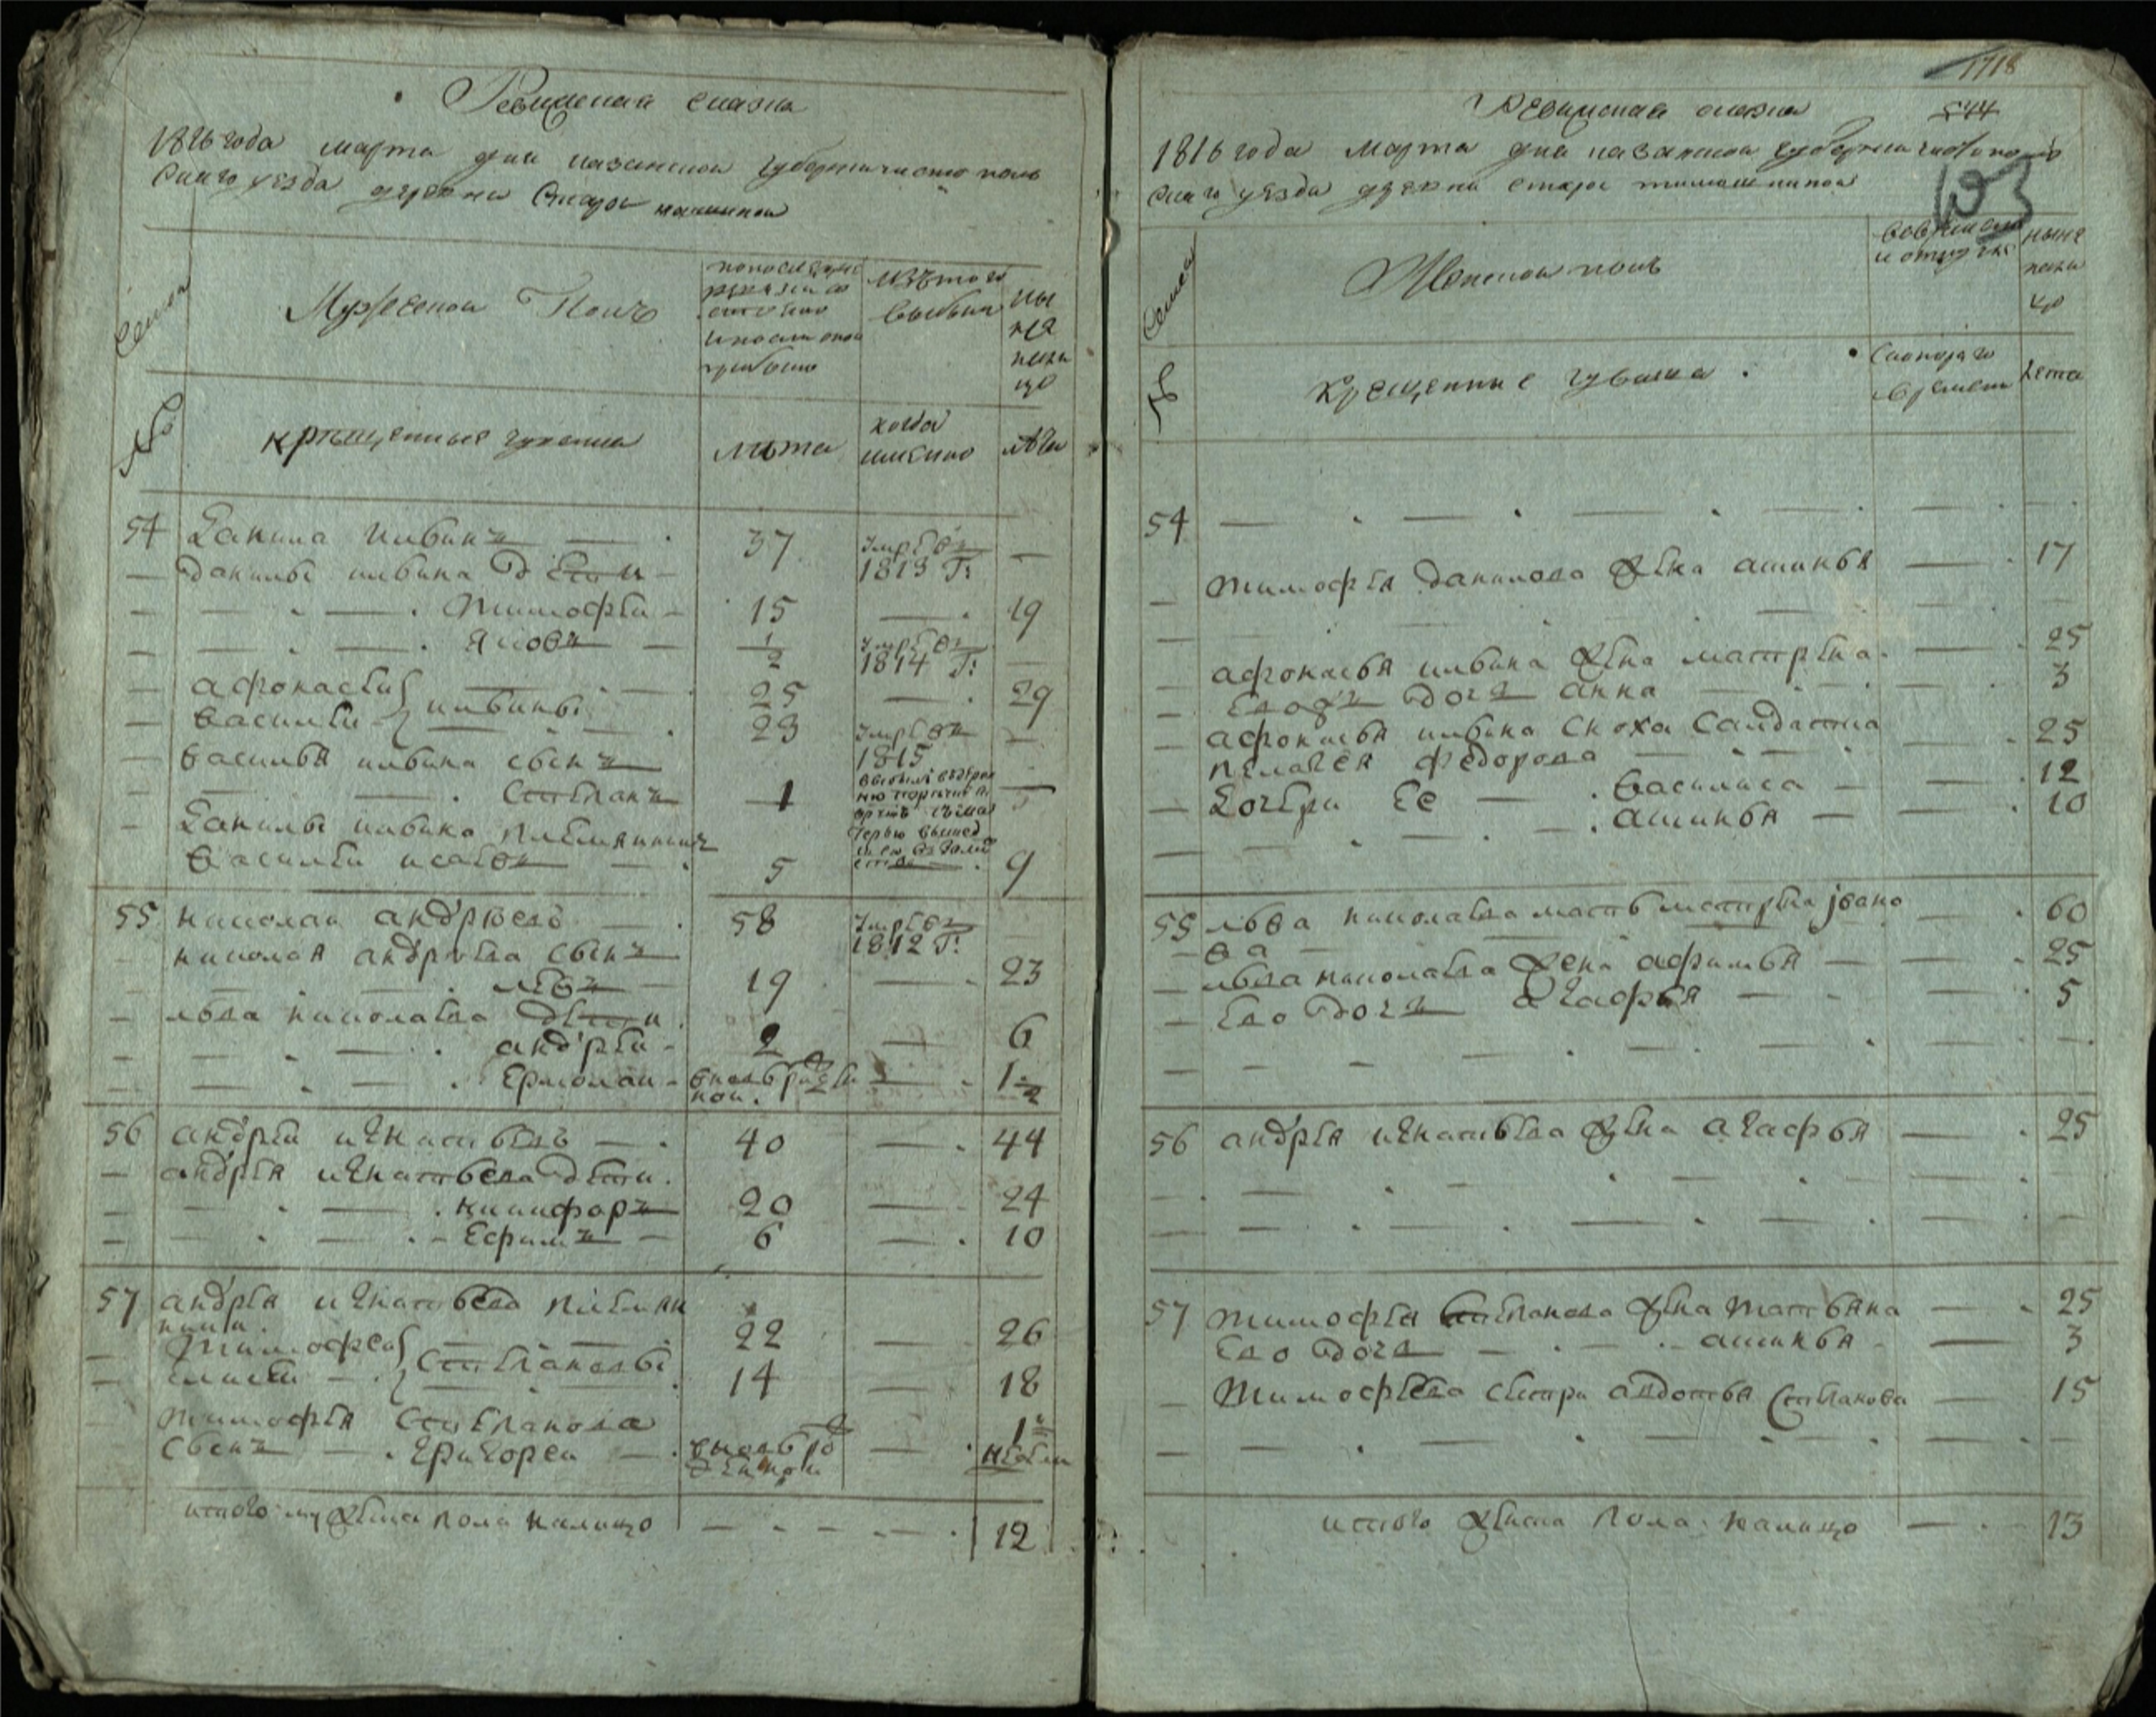 Ревижская сказка
1816 года марта дня казанской губернии чистополь
скаго уезда деревни Старой
Семьи
Мужеской Полъ
по последней
ревизіи
состояло
и после оной
прибыло
Изъ того
выбыли
ны
не
нали
цо
№
крещенные чуваша
лѣта
когда
имянно
лѣта
54 Данила илвинъ — 37 Умрѣвъ —
1813 Г:
— Данилы илвина дѣти —
— Тимофѣи — 15 — 19
— Яковъ — 1/2 Умрѣвъ
1814 Г: —
— афонасѣи 25 — 29
— василѣи } илвины 23 Умрѣвъ —
василья илвина сынъ 1815
— Степанъ — 1
— Данилы илвина племянникъ
василѣи исаевъ — 5 9
55 николаи андрѣевъ — 58 Умрѣвъ
1812 Г: —
— николая андрѣева сынъ
— левъ — 19 — 23
— льва николаева дѣти
— андрѣи — 2 — 6
— Ермолаи — 1 1/2
56 андрѣи игнатьевъ — 40 — 44
— андрѣя игнатьева дѣти.
— никифоръ 20 — 24
— Ефимъ — 6 — 10
57 андрѣя игнатьева племян
ники.
— Тимофеи 22 — 26
— } Степановы 14 — 18
— Тимофѣя Степанова
сынъ — Григореи — 1
недели
итого мужеска пола налицо — 12
1718
Ревижская сказка 544
1816 года Марта дня казанской губернии чистополь
скаго уезда деревни старой
103
Семьи
Женской полъ
ныне
нали
цо
№
Крещенные чуваша
Лета
54 —
— тимофѣя данилова жена акинья — 17
—
— афонасья илвина жена матрѣна — 25
— Его дочь анна — 3
— афонасья илвина сноха Салдатка
пелагея федорова — 25
— Дочери Ее — василиса — 12
— акинья — 10
55 льва николаева мать матрѣна івано — 60
— ва —
— льва николаева жена афимья — 25
— Ево дочь агафья — 5
—
56 андрѣя игнатьева жена агафья — 25
—
—
57 Тимофѣя Степанова жена татьяна — 25
Ево дочь — акинья — 3
— Тимофѣева сестра авдотья Степанова — 15
—
итого женска пола налицо — 13